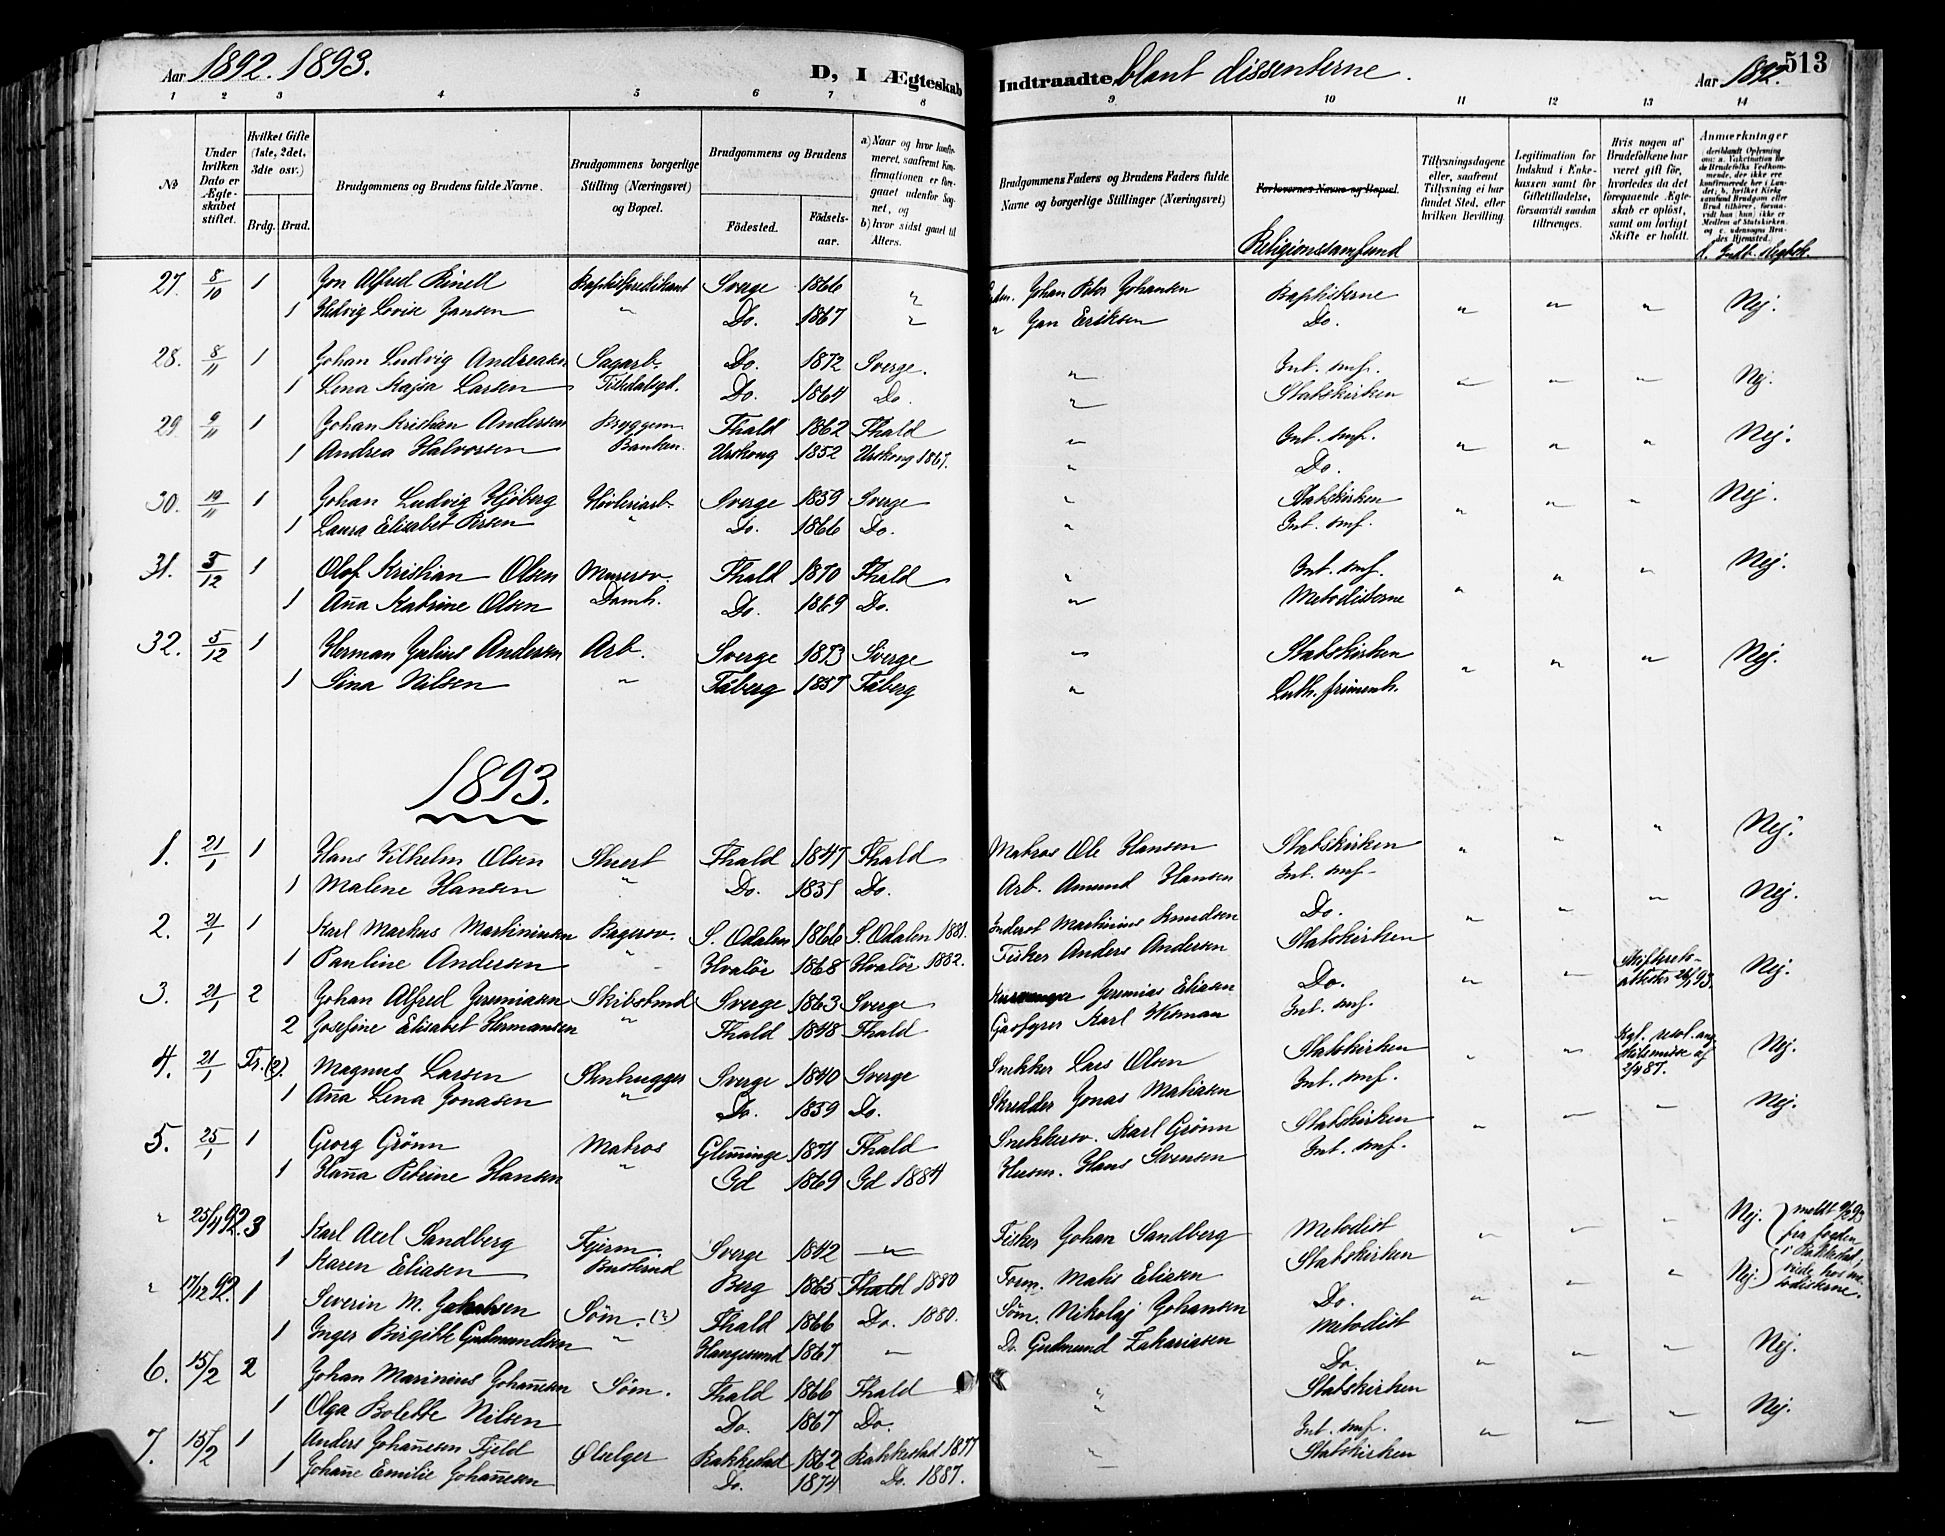 Aar 1892. 1893.
D, I Ægteskab
Indtraadte, blant dissenterne.
Aar 1892.
513
1 2 3 4 5 6 7 8 9 10 11 12 13 14
№
Under hvilken Dato er Ægteskabet stiftet.
Hvilket Gifte (1ste, 2det, 3die osv.)
Brdg. Brud.
Brudgommens og Brudens fulde Navne.
Brudgommens borgerlige Stilling (Næringsvei) og Bopæl.
Brudgommens og Brudens
Fødested.
Fødselsaar.
a) Naar og hvor konfirmeret, saafremt Konfirmationen er foregaaet udenfor Sognet, og
b) hvor sidst gaaet til Alters.
Brudgommens Faders og Brudens Faders fulde Navne og borgerlige Stillinger (Næringsvei)
Forlovernes Navne og Bopæl.
Religionssamfund
Tillysningsdagene eller, saafremt Tillysning ei har fundet Sted, efter hvilken Bevilling.
Legitimation for Indskud i Enkekassen samt for Giftetilladelse, forsaavidt saadan tiltrænges.
Hvis nogen af Brudefolkene har været gift før, hvorledes da det foregaaende Ægteskab er opløst, samt om lovligt Skifte er holdt.
Anmærkninger
27. 8/10 1 Jon Alfred Rinell Baptistpredikant Sverge 1866 " Johan Peter Johansen Baptisterne " " " Nej.
1 Hedvig Lovise Jansen " Do. 1867 " " Jan Eriksen Do.
28. 8/11 1 Johan Ludvig Andreasen Sagarb. Do. 1872 Sverge. " Int. smf. " " " Nej.
1 Lena Kajsa Larsen Tistedalsgd. Do. 1864 Do. " Statskirken
29 9/11 1 Johan Kristian Andersen Byggem. Fhald 1862 Fhald " Int. smf. " " " Nej.
1 Andrea Halvorsen Banken. Urskoug 1852 Urskoug 1867. " Do.
30. 19/11 1 Johan Ludvig Sjöberg Høvleriarb. Sverge 1859 Sverge " Statskirken " " " Nej.
1 Laura Elisabet Persen " Do. 1866 Do. " Int. smf.
31. 3/12 1 Olof Kristian Olsen Murersv. Fhald 1870 Fhald " Int. smf. " " " Nej.
1 Ana Katrine Olsen Damh. Do. 1869 Do. " Metodisterne
32. 5/12 1 Herman Julius Andersen Arb. Sverge 1873 Sverge " Statskirken " " " Nej.
1 Sina Nilsen " Fåberg 1857 Fåberg " Luth. frimenh.
1893.
1. 21/1 1 Hans Vilhelm Olsen Stuert Fhald 1847 Fhald Matros Ole Hansen Statskirken " " " Nej.
1 Malene Hansen " Do. 1851 Do. Arb. Amund Hansen Int. smf.
2. 21/1 1 Karl Markus Martiniusen Bagersv. S. Odalen 1866 S. Odalen 1881. Inderst Martinius Knudsen Do. " " " Nej.
1 Pauline Andersen " Hvalör 1868 Hvalör 1882. Fisker Anders Andersen Statskirken
3. 21/1 2 Johan Alfred Jeremiasen Skibstmd Sverge 1863 Sverge Jeremias Eliasen Do. " " Skifterets-attester 26/1 93. Nej.
2 Josefine Elisabet Hermansen " Fhald 1848 Fhald Gasfyrer Karl Herman Int. smf.
4. 21/1 Fr. (2). Magnus Larsen Stenhugger Sverge 1840 Sverge Snekker Lars Olsen Statskirken " " Kgl. resol. ang. skilsmisse af 2/4 87. Nej.
1 Ana Lena Jonasen " Do. 1859 Do. Skredder Jonas Matiasen Int. smf.
5. 25/1 1 Georg Grönn Matros Gleminge 1871 Fhald Snekkersv. Karl Grönn Statskirken " " " Nej.
1 Hana Petrine Hansen " Id 1869 Id 1884 Husm. Hans Svensen Int. smf.
" 25/4 92. 3 Karl Axel Sandberg Fyrm. Sverge 1842 " Fisker Johan Sandberg Metodist " " " Nej. } meldt 9/2 93 fra fogden i Rakkestad, vide hos metodisterne.
1 Karen Eliasen Buskrud Berg 1865 Fhald 1880 Form. Mats Eliasen Statskirken
" 17/12 92. 1 Severin M. Jakobsen Søm. (?) Fhald 1866 Do. 1880. Søm. Nikolaj Johansen Do. " " " Nej. }
1 Inger Birgitte Gudmundsen " Haugesund 1867 " Do. Gudmund Zakariasen Metodist
6. 15/2 2 Johan Marinius Johanesen Søm. Fhald 1866 Fhald " Do. " " " Nej.
1 Olga Bolette Nilsen Do. 1867 Do. " Statskirken
7. 15/2 1 Anders Johanesen Fjeld Ølselger Rakkestad 1862 Rakkestad 1877 " Int. smf. " " " Nej.
1 Johane Emilie Johanesen Do. 1874 Do. 1887. Statskirken